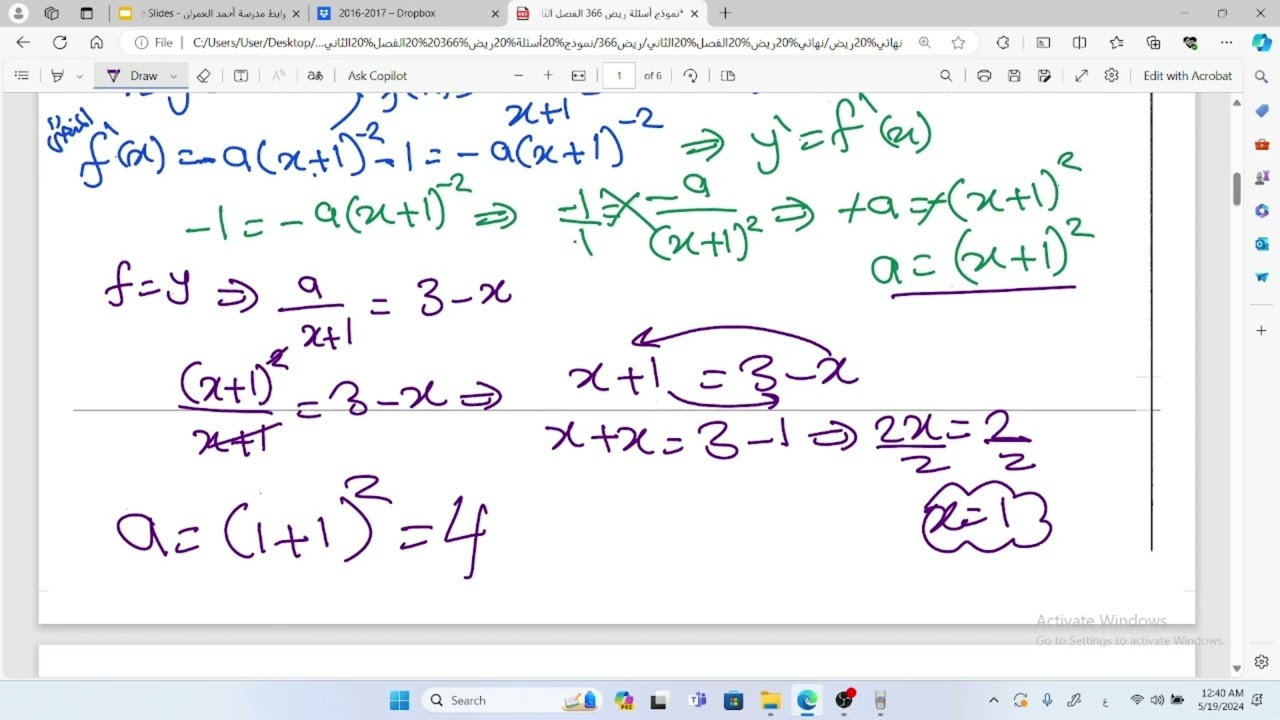 Slides - رابط مدرسة أحمد العمران
2016-2017 – Dropbox
*نموذج أسئلة ريض 366 الفصل الثا
File
C:/Users/User/Desktop/...نهائي%20ريض/نهائي%20ريض%20الفصل%20الثاني/ريض366/نموذج%20أسئلة%20ريض%20366%20الفصل%20الثاني
Draw
Ask Copilot
1
of 6
Edit with Acrobat
x+1
f'(x) = -a(x+1)^-2 · 1 = -a(x+1)^-2 ⇒ y' = f'(x)
-1 = -a(x+1)^-2 ⇒ -1/1 = -a/(x+1)^2 ⇒ +a = +(x+1)^2
a = (x+1)^2
f = y ⇒ a/(x+1) = 3-x
(x+1)^2/(x+1) = 3-x ⇒ x+1 = 3-x
x+x = 3-1 ⇒ 2x/2 = 2/2
x=1
a = (1+1)^2 = 4
Activate Windows
Go to Settings to activate Windows.
Search
12:40 AM
5/19/2024